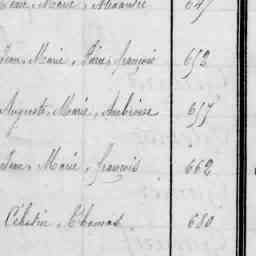 Jean, Marie, Alexandre 647
Jean, Marie, Pierre, françois 653
Auguste, Marie, Ambroise 657
Jean, Marie, françois 662
Célestin, Thomas 680